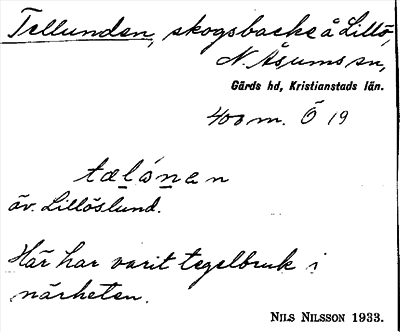 Tellunden, skogsbacke å Lillö,
N. Åsums sn,
Gärds hd, Kristianstads län.
400 m. Ö 19
tælónen
äv. Lillöslund.
Här har varit tegelbruk i
närheten.
NILS NILSSON 1933.